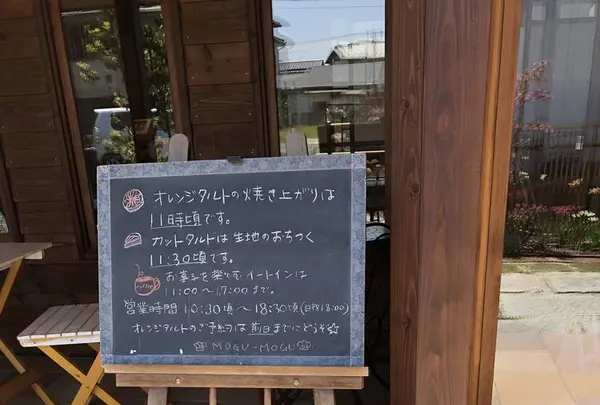 オレンジタルトの焼き上がりは
11時頃です。
カットタルトは生地のおちつく
11:30頃です。
coffee
お喜しを楽しむイートインは
11:00〜17:00まで。
営業時間 10:30頃〜18:30頃(日祝18:00)
オレンジタルトのご予約は前日までにどうぞ☆
MOGU-MOGU